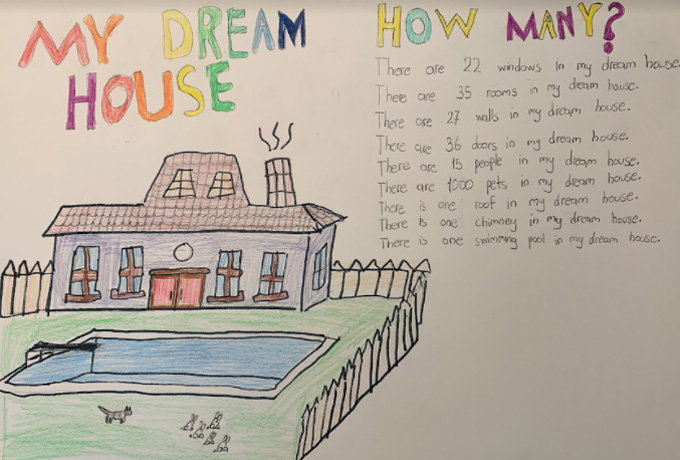 MY DREAM
HOUSE
HOW MANY?
There are 22 windows in my dream house.
There are 35 rooms in my dream house.
There are 27 walls in my dream house.
There are 36 doors in my dream house.
There are 15 people in my dream house.
There are 1000 pets in my dream house.
There is one roof in my dream house.
There is one chimney in my dream house.
There is one swimming pool in my dream house.